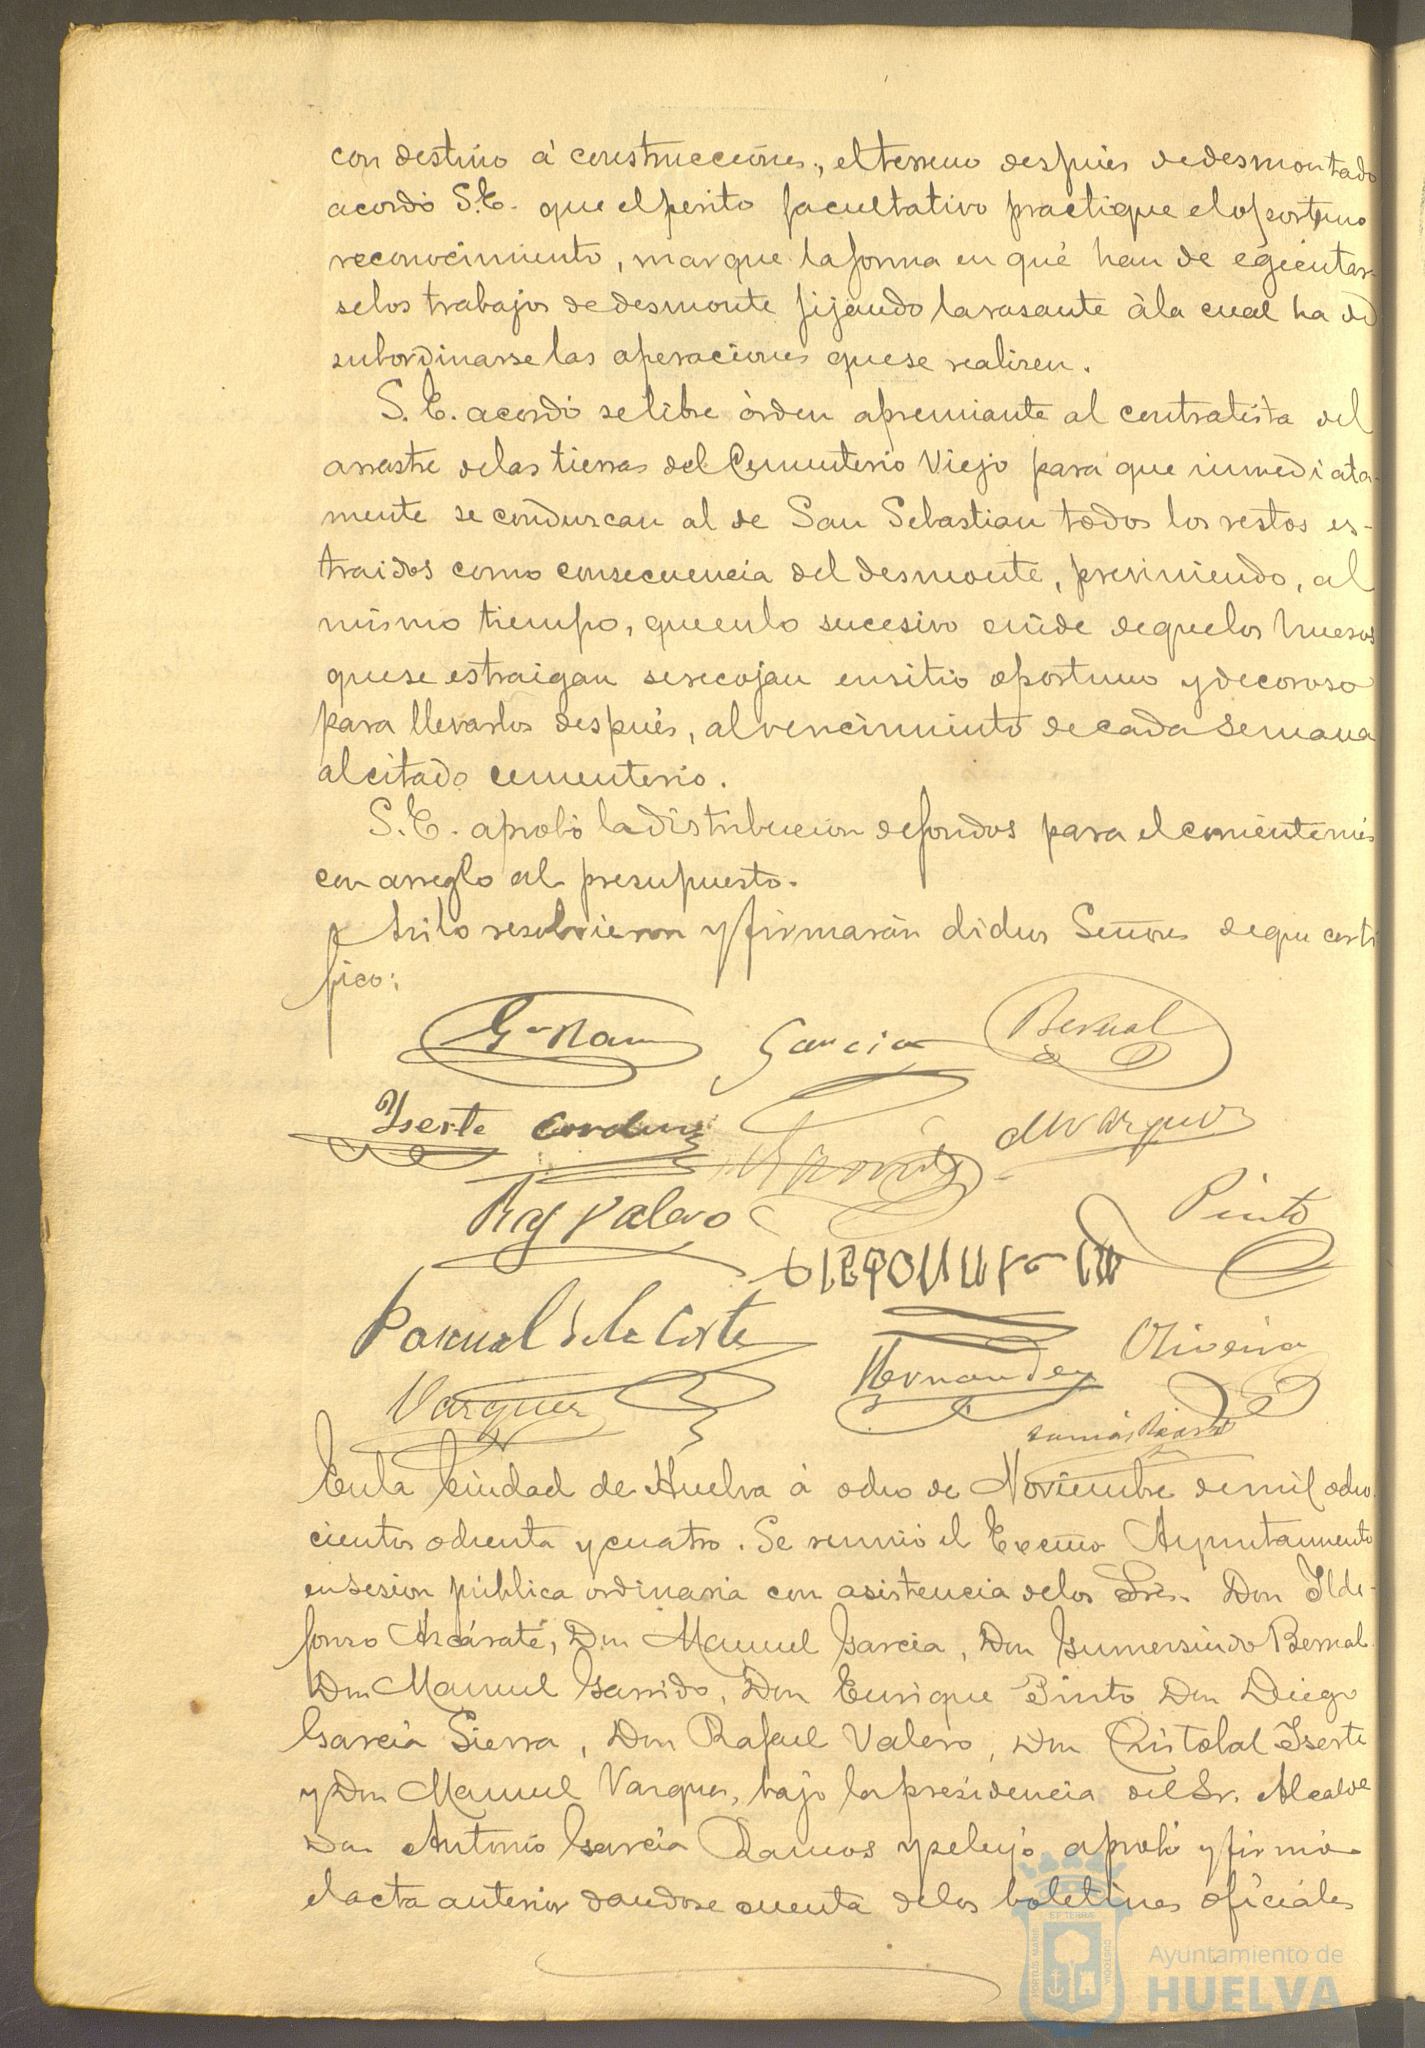 con destino á construcciones, el terreno despues de desmontado
acordó S.E. que el perito facultativo practique el oportuno
reconocimiento, marque la forma en qué han de egecutar-
se los trabajos de desmonte fijando la rasante á la cual ha de
subordinarse las operaciones que se realisen.
S. E. acordó se libre órden apremiante al contratista del
arrastre de las tierras del Cementerio Viejo para que inmediata-
mente se condurcan al de San Sebastian todos los restos es-
traidos como consecuencia del desmonte, previniendo, al
mismo tiempo, que en lo sucesivo cuide de que los huesos
que se estraigan se recojan en sitio oportuno y decoroso
para llevarlos después, al vencimiento de cada semana
al citado cementerio.
S. E. aprobó la distribucion de fondos para el corriente mes
con arreglo al presupuesto.
Asi lo resolvieron y firmarán dichos Señores de que certi
fico:
Ga Ram
Garcia
Bernal
Yserte
Cordero
M Vazquez
Raf Valero
Pinto
Pascual de la Corte
Hernandez
Oliveira
Vazquez
En la Ciudad de Huelva á ocho de Noviembre de mil ocho
cientos ochenta y cuatro. Se reunió el Excmo Ayuntamiento
en sesion pública ordinaria con asistencia de los Sres. Don Ilde-
fonso Azcárate, Don Manuel Garcia, Don Gumersindo Bernal
Don Manuel Garrido, Don Enrique Pinto Don Diego
Garcia Sierra, Don Rafael Valero, Don Cristobal Iserte
y Don Manuel Vazquez, bajo la presidencia del Sr. Alcalde
Don Antonio Garcia Ramos y se leyó aprobó y firmó
el acta anterior dandose cuenta de los boletines oficiales
PORTUS MARIS ET TERRÆ CUSTODIA
Ayuntamiento de
HUELVA